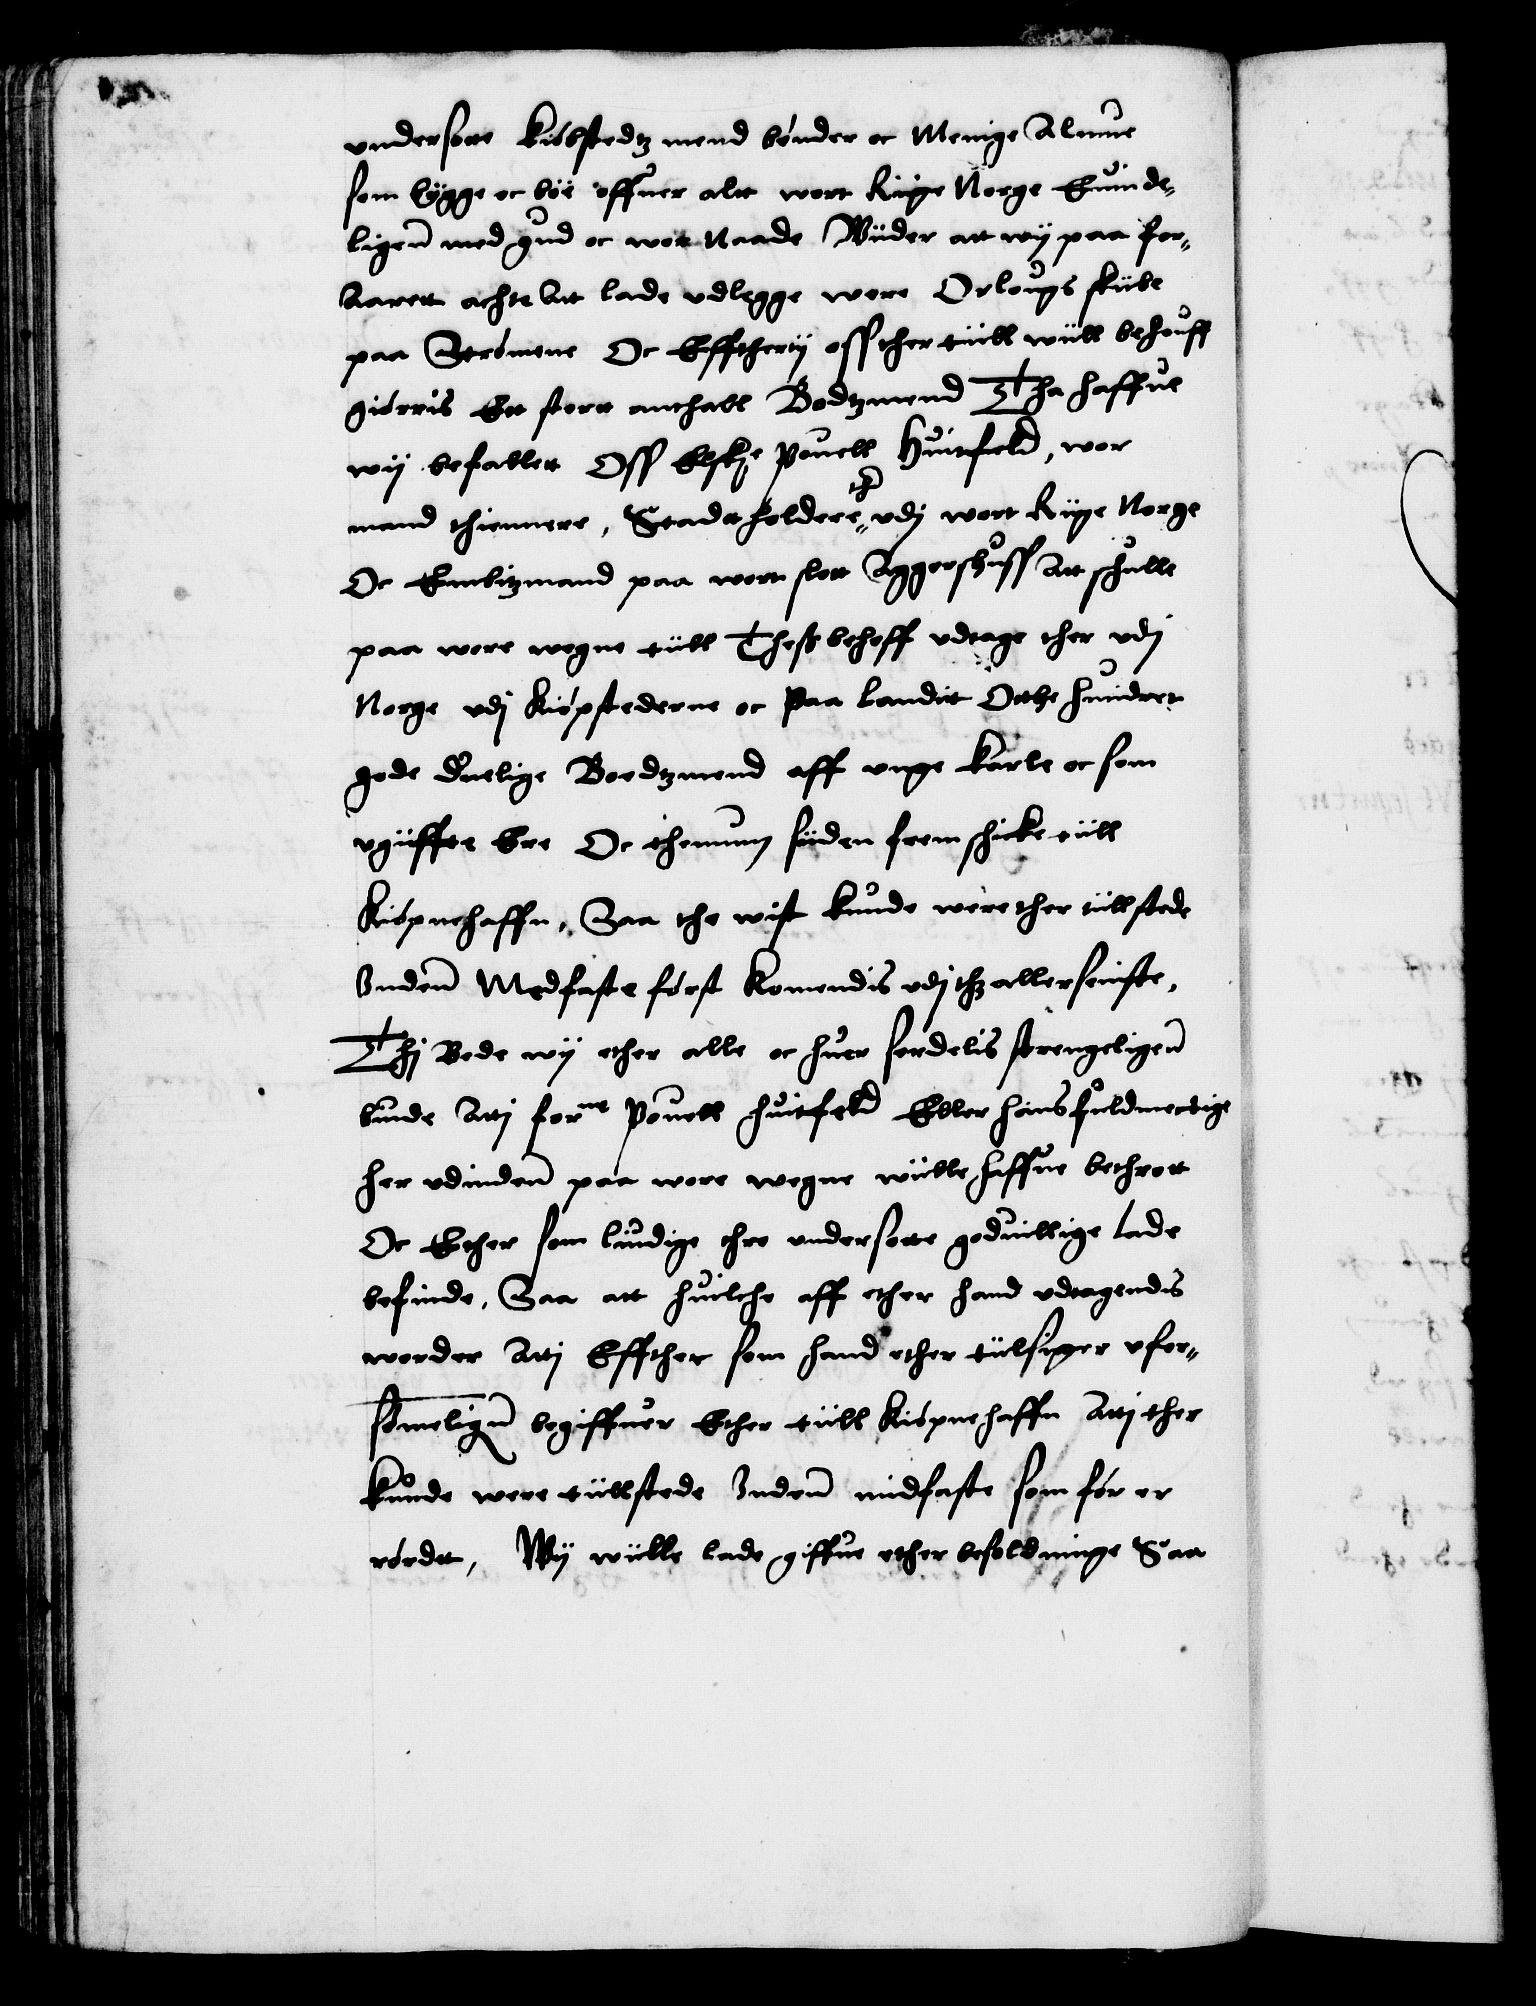 vndersotte kiöbstedtz mend bönder oc Menige Almue
som bÿgge oc böe offuer altt wortt Riige Norge Euinde-
ligenn med gud oc wor Naade Wiider att wij paa for-
Aarett achte Att lade vdlegge wore Orlougs skiibe
paa Strömene Oc Effthertij oss ther tiill wiill behouff
giörris Ett stortt anthall Bodtzmend Tha haffue
wij befallett Oss Elskie Pouell Huitfeld, wor
mand thiennere, Stadtholdere vdj wort Riige Norge
Oc Embitzmand paa wort slott Aggershuss Att schulle
paa wore wegne tiill Thess behoff vdtage ther vdj
Norge vdj kiöpstederne oc Paa landit Otthe hundret
gode duelige Boedtzmend aff vnge karle oc som
vgiiffte Ere Oc thennum siiden fremschicke tiill
Kiöpnehaffn, Saa the wist kunde were ther tiillstede
Indenn Medfaste först komendis vdj thz allerseniste,
Thj Bede wij ether alle oc huer serdelis strengeligenn
biude Attj forne Pouell huitfeld Eller hans fuldmectige
her vdindenn paa wore wegne wiille haffue bethrott
Oc Ether som liudige thro vndersotte goduillige lade
befinde, Saa att huilche aff ether hand vdtagendis
worder Attj Effther som hand ether tiilsiger vfor-
sömeligen begiffuer Ether tiill Kiöpnehaffn Attj ther
kunde were tiillstede Indenn midfaste som för er
rördtt, Wij wiille lade giffue ether besoldninge Saa